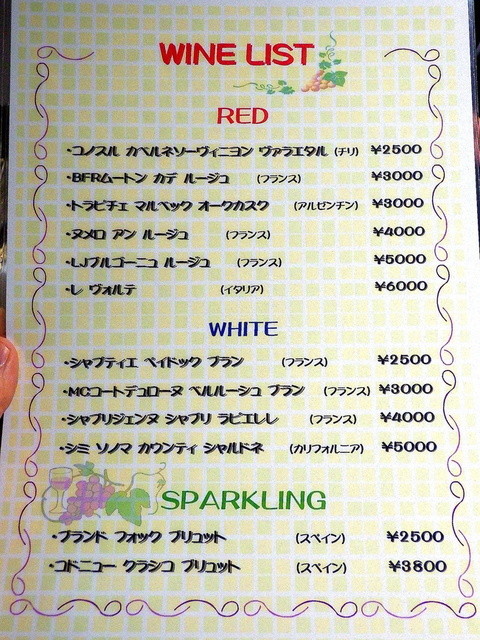 WINE LIST
RED
・コノスル カベルネソーヴィニヨン ヴァラエタル (チリ) ¥2500
・BFRムートン カデ ルージュ (フランス) ¥3000
・トラピチェ マルベック オークカスク (アルゼンチン) ¥3000
・ヌメロ アン ルージュ (フランス) ¥4000
・LJブルゴーニュ ルージュ (フランス) ¥5000
・レ ヴォルテ (イタリア) ¥6000
WHITE
・シャプティエ ペイドック ブラン (フランス) ¥2500
・MCコートデュローヌ ベルルーシュ ブラン (フランス) ¥3000
・シャブリジェンヌ シャブリ ラピエレレ (フランス) ¥4000
・シミ ソノマ カウンティ シャルドネ (カリフォルニア) ¥5000
SPARKLING
・ブランド フォック ブリュット (スペイン) ¥2500
・コドニュー クラシコ ブリュット (スペイン) ¥3800